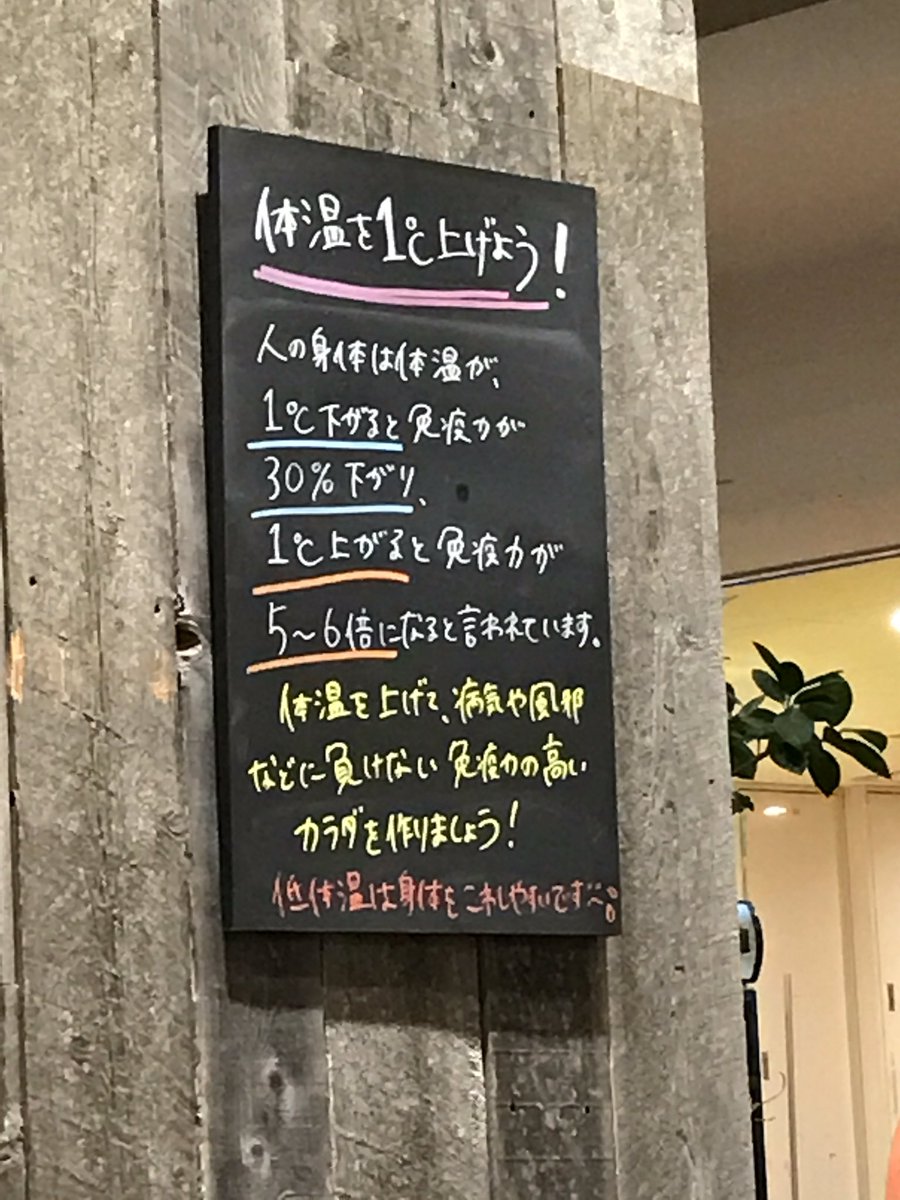 体温を1℃上げよう!
人の身体は体温が、
1℃下がると免疫力が
30%下がり、
1℃上がると免疫力が
5〜6倍になると言われています。
体温を上げて、病気や風邪
などに負けない免疫力の高い
カラダを作りましょう!
低体温は身体をこわしやすいです〜